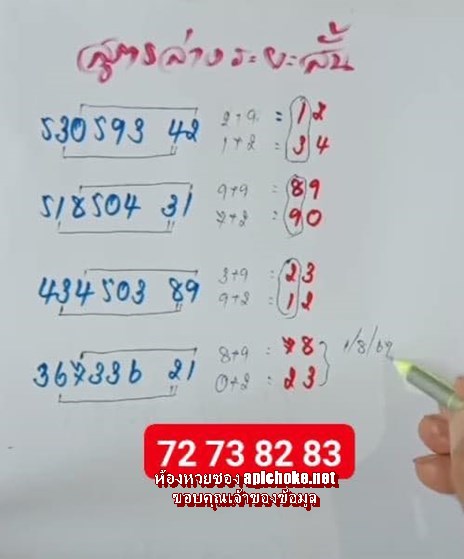 สูตรล่างระยะสั้น
530593 42 2+9 = 12
1+2 = 34
518504 31 9+9 = 89
7+2 = 90
434503 89 3+9 = 23
9+2 = 12
367336 21 8+9 = 78
0+2 = 23
1/8/69
72 73 82 83
ห้องหวยซอง apichoke.net
ขอบคุณเจ้าของข้อมูล